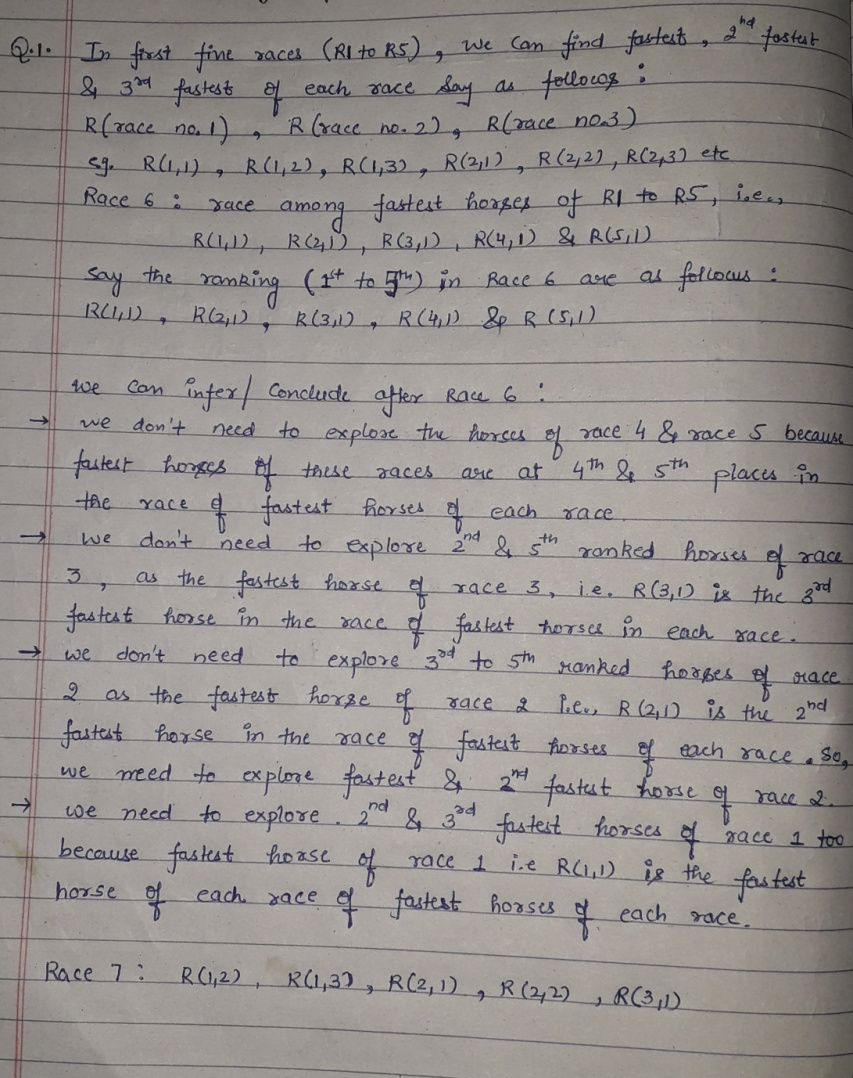 Q.1. In first five races (R1 to R5), we can find fastest, 2nd fastest
& 3rd fastest of each race say as follows :
R(race no. 1) , R(race no. 2) , R(race no.3)
eg. R(1,1) , R(1,2) , R(1,3) , R(2,1) , R(2,2) , R(2,3) etc
Race 6 : race among fastest horses of R1 to R5, i.e.,
R(1,1) , R(2,1) , R(3,1) , R(4,1) & R(5,1)
say the ranking (1st to 5th) in Race 6 are as follows :
R(1,1) , R(2,1) , R(3,1) , R(4,1) & R (5,1)
we can infer/ conclude after Race 6 :
→ we don't need to explore the horses of race 4 & race 5 because
fastest horses of these races are at 4th & 5th places in
the race of fastest horses of each race
→ we don't need to explore 2nd & 5th ranked horses of race
3, as the fastest horse of race 3, i.e. R(3,1) is the 3rd
fastest horse in the race of fastest horses in each race.
→ we don't need to explore 3rd to 5th ranked horses of race
2 as the fastest horse of race 2 i.e., R(2,1) is the 2nd
fastest horse in the race of fastest horses of each race. So,
we need to explore fastest & 2nd fastest horse of race 2.
→ we need to explore. 2nd & 3rd fastest horses of race 1 too
because fastest horse of race 1 i.e R(1,1) is the fastest
horse of each race of fastest horses of each race.
Race 7 : R(1,2) , R(1,3) , R(2,1) , R(2,2) , R(3,1)